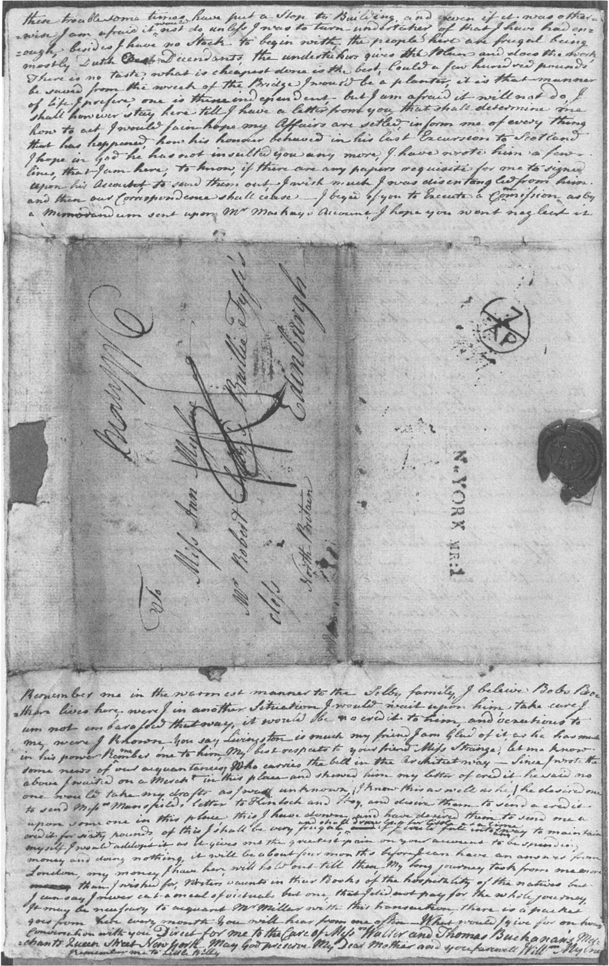 these troublesome times, have put a Stop to Building, and even if it was other
wise I am afraid it not do unless I was to turn undertaker of that I have had en
ough, besides I have no Stock to begin with the people here are frugal being
mostly Dutch Decendants, the undertaker gives the Plan and does the work
There is no taste, what is cheapest done is the best, Could a few hundred pounds
be saved from the wreck of the Bridge I would be a planter, it is that manner
of life I prefer, one is there independent, but I am afraid it will not do, I
shall however stay here till I have a letter from you that shall determine me
how to act I would fain hope my Affairs are setled, inform me of every thing
that has happened, how his honour behaved in his last Excursion to Scotland
I hope in God he has not insulted you any more, I have wrote him a few
lines, that I am here, to know if there are any papers requisite for me to signe
upon his Account to send them out I wish much I was disentangled from him
and then our Correspondence shall cease I begg of you to Execute a Commission as by
a Memorandum sent upon Mr Mackay's Account I hope you wont neglect it
To
Miss Ann Mylne
Mr Robert
Baillie Fyfe's
closs
Edinburgh
North Britain
7
AP
N-YORK MR:1
Remember me in the warmest manner to the Selby family, I beleive Bobs
lives here, were I in another Situation I would wait upon him, take care I
am not embarassed that way, it would be no credit to them, and vexatious to
me, were I Known. You say Livingston is much my friend I am Glad of it as he has much
in his power Remember me to him, My best respects to your friend Miss Strange, let me know
some news of our acquaintances, Who carries the bill in the Architect way — Since I wrote the
above I waited on a Merch.t in this place and shewed him my letter of credit he said no
one would take my drafts as I was unknown, I knew this as well as he, he desired me
to send Messrs Mansfield's letter to Kinloch and Hog, and desire them to send a credit
upon some one in this place this I have done and have desired them to send me a
credit for sixty pounds of this I shall be very frugal, and if
to maintain
myself I would addopt it as it gives me the greatest pain on your account to be spending
money and doing nothing, it will be about four months before I can have an answer from
London, my money I have here will hold out till then My long journey took from me more
than I wished for, Writers vaunts in their Books of the hospitality of the natives but
I can say I never eat a meal of victuals but one, that I did not pay for the whole journey,
It may be necessary to acquaint Mr Millar with this transaction there is a packet
goes from that every month You will hear from me often What would I give for an hours
Conversation with you Direct for me to the Care of Messrs Walter and Thomas Buchanan's Mer-
chants Queen Street New York May God preserve My Dear Mother and you farewell Willm Mylne
Remember me to Little Willy